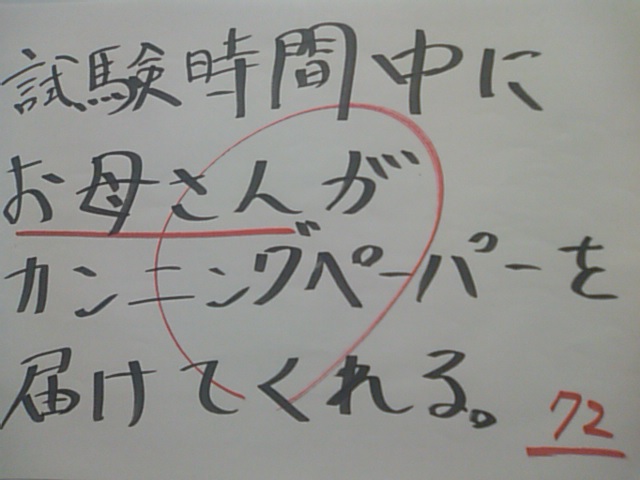 試験時間中に
お母さんが
カンニングペーパーを
届けてくれる。
72